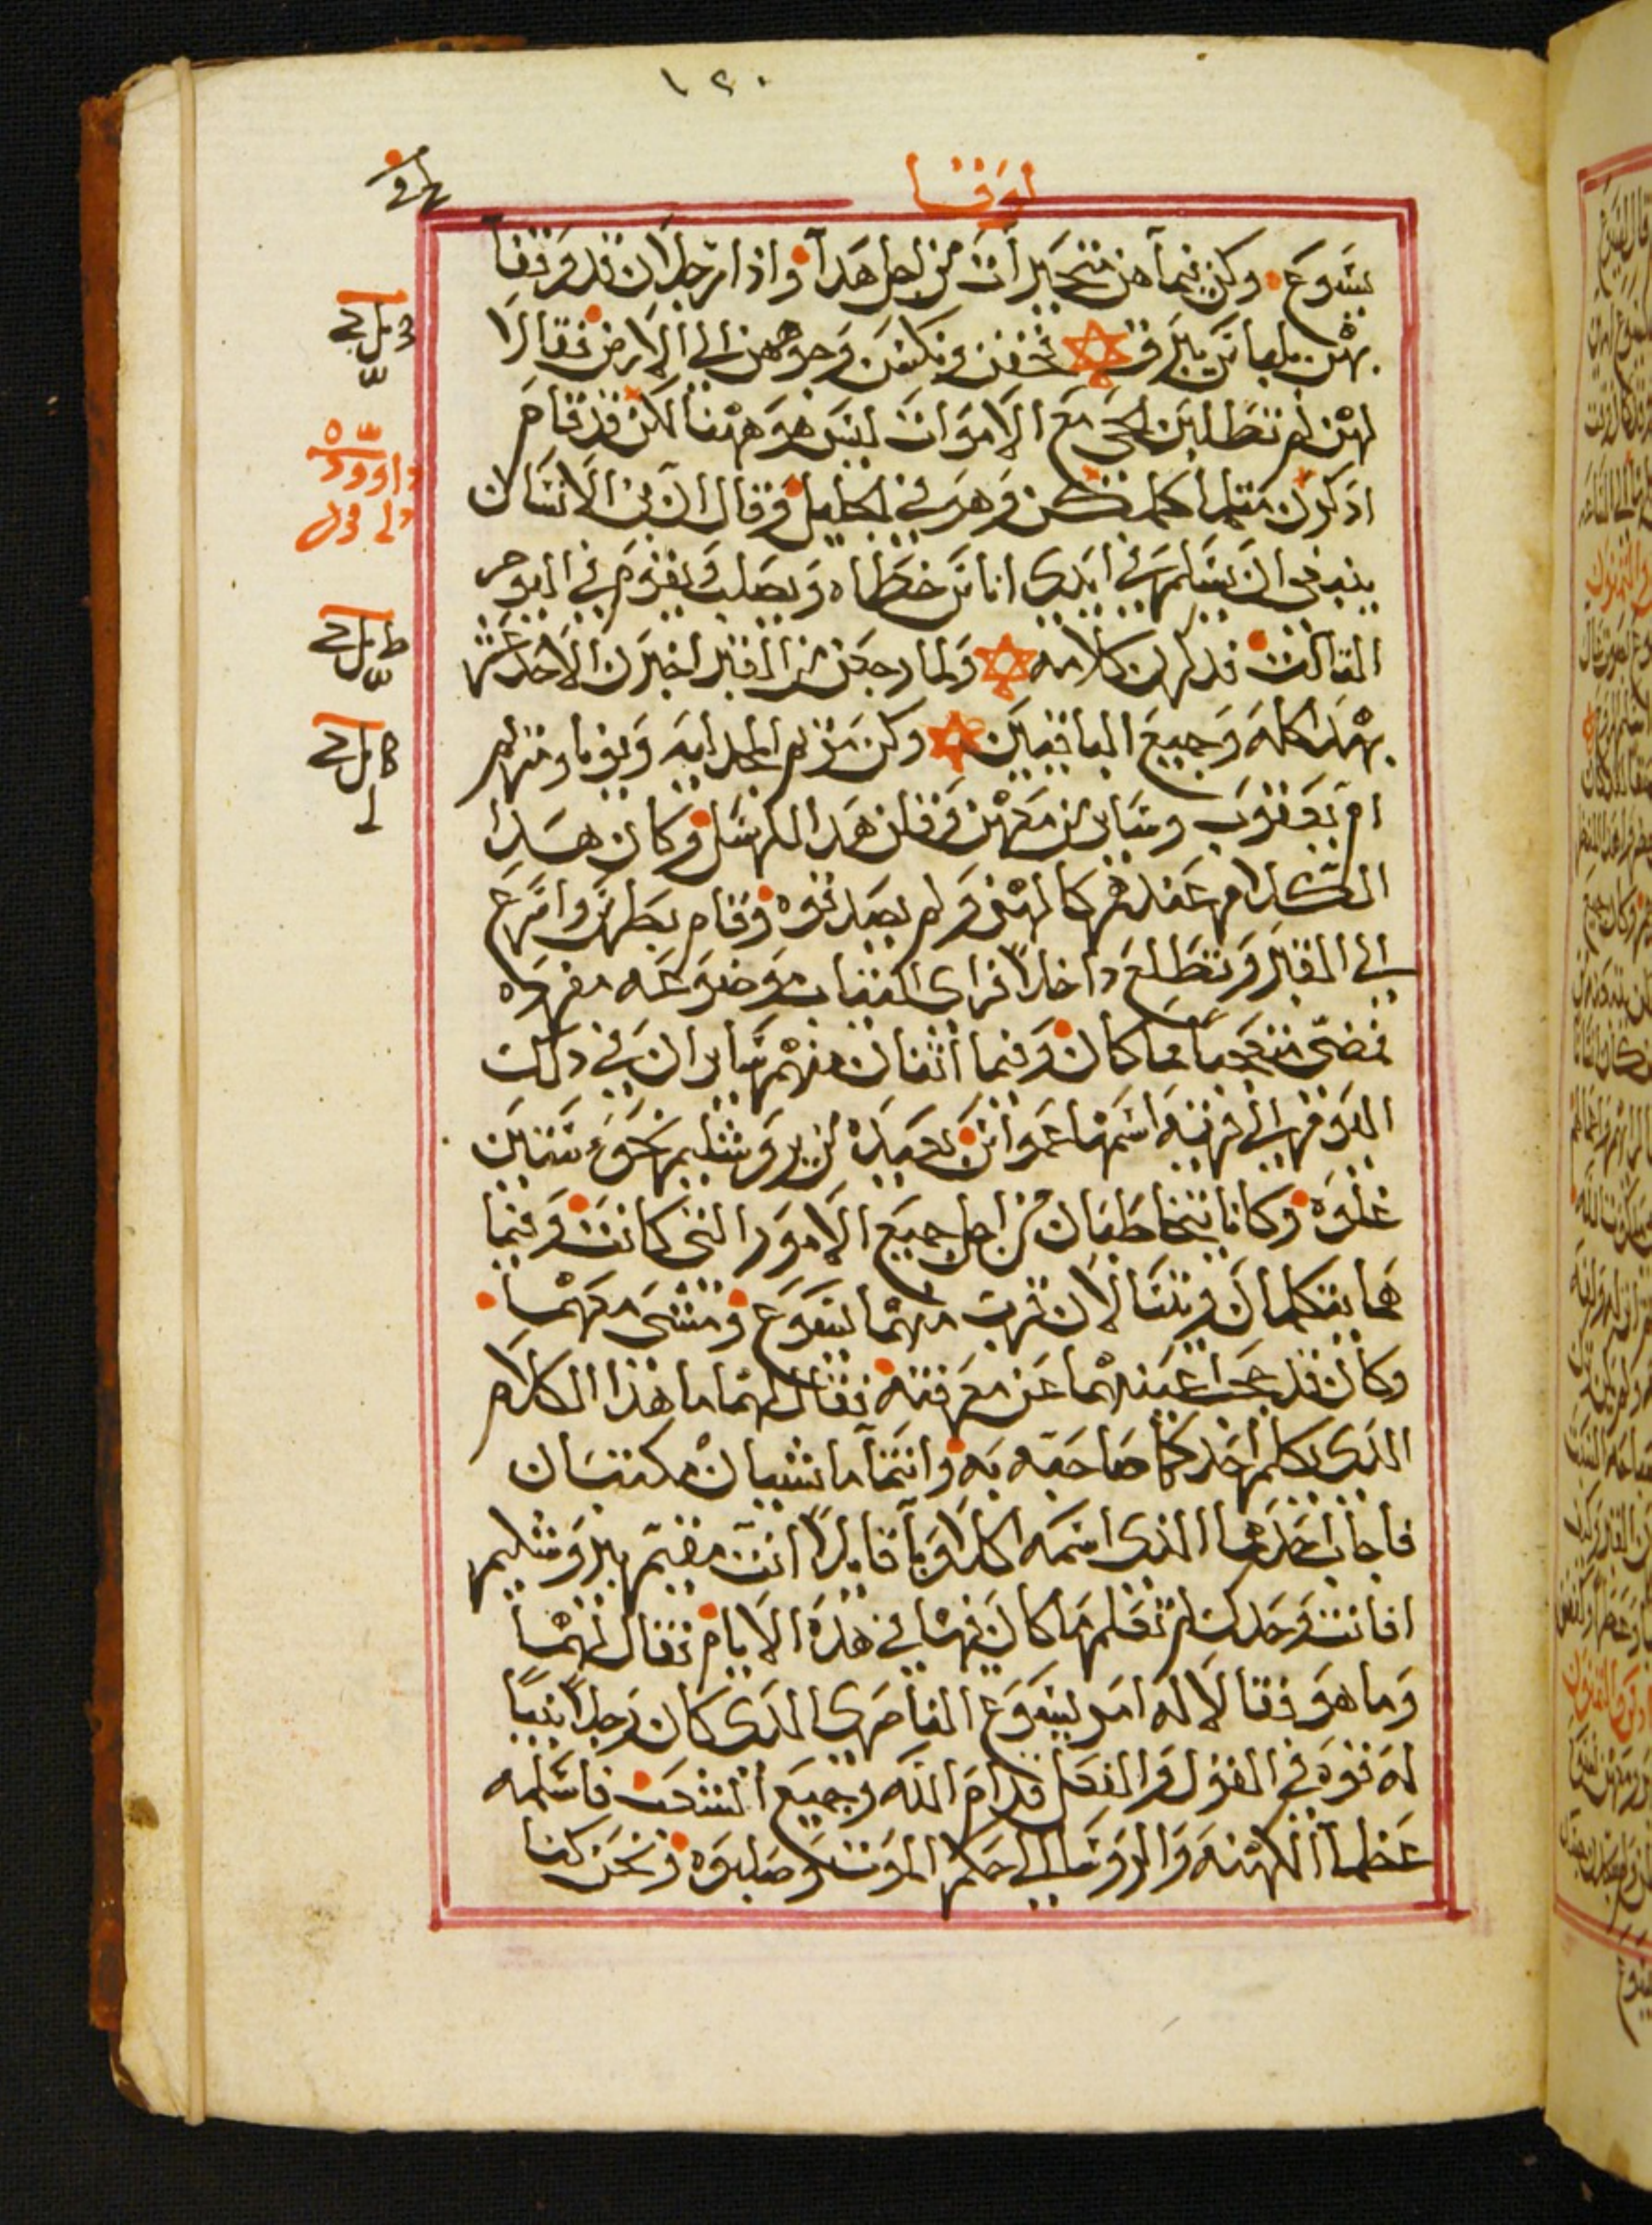 ١٢٠
لوقا
يسوع وكن فيما هن متحيرات من اجل هدا واذا رجلان قد وقفا
بهن بلباس يبرق فخفن ونكسن وجوههن الى الارض فقالا
لهن لم تطلبن الحي مع الاموات ليس هو ههنا لكن قد قام
اذكرن مثلما كلمكن وهو في الجليل وقال ان ابن الانسان
ينبغي ان يسلم في ايدي اناس خطاه ويصلب ويقوم في اليوم
الثالث فذكرن كلامه ولما رجعن من القبر اخبرن الاحد عشر
بهدا كله وجميع الباقيين وكن مريم المجدليه ويونا ومريم
ام يعقوب وساير من معهن وقلن هدا للرسل وكان هدا
الكلام عندهم كالهزو ولم يصدقوه وقام بطرس واسرع
الى القبر وتطلع داخلا فراى الثياب موضوعه مفرده
فمضى متعجبا مما كان وفيما اثنان منهم سايران في دلك
اليوم الى قريه اسمها عمواس بعيده من يروشليم نحو ستين
غلوه وكانا يتخاطبان من اجل جميع الامور التي كانت وفيما
هما يتكلمان ويتسالان قرب منهما يسوع ومشى معهما
وكان قد حجب اعينهما عن معرفته فقال لهما ما هذا الكلام
الدي يكلم احدكما صاحبه به وانتما ماشيان مكتئبان
فاجاب احدهما الدي اسمه اكلاوبا قايلا انت مقيم بيروشليم
افانت وحدك لم تعلم ما كان فيها في هذه الايام فقال لهما
وما هو فقالا له امر يسوع الناصري الدي كان رجلا نبيا
له قوه في القول والفعل قدام الله وجميع الشعب فاسلمه
عظما الكهنه والروسا الى حكم الموت وصلبوه ونحن كنا